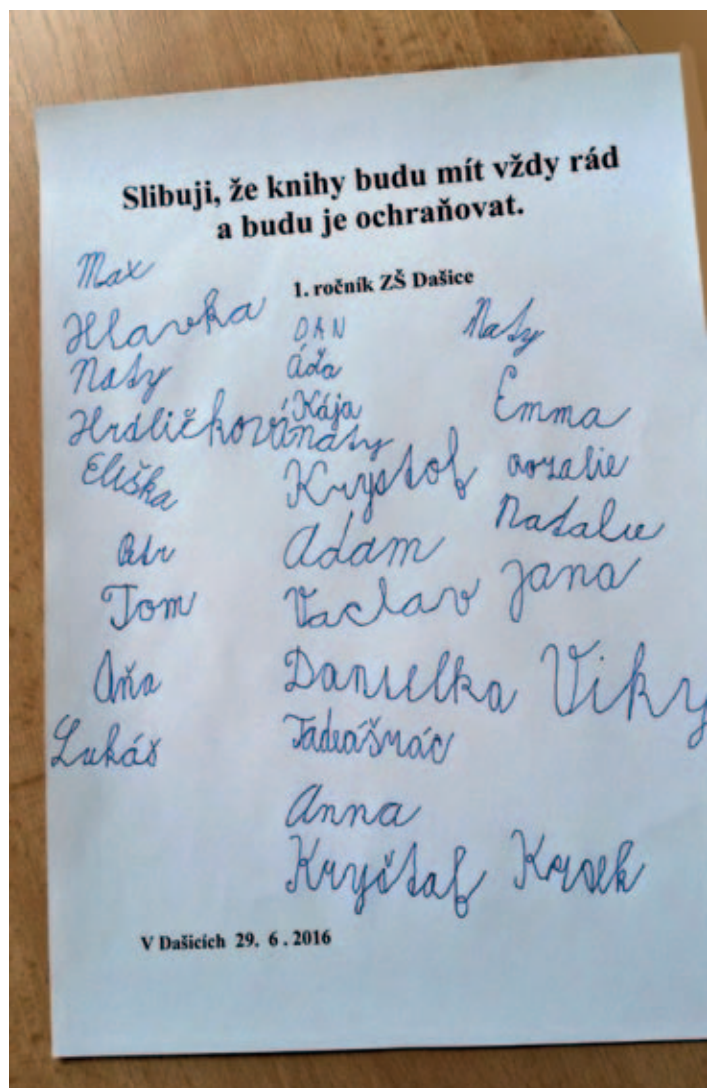 Slibuji, že knihy budu mít vždy rád
a budu je ochraňovat.
1. ročník ZŠ Dašice
Max
Hlavka
Naty
Hrdličková
Eliška
Petr
Tom
Áňa
Lukáš
DAN
Áďa
Kája
naty
Kryštof
Adam
Vaclav
Danielka
Tadeáš
Anna
Kryštof
Naty
Emma
rozalie
Natalie
Jana
Viky
V Dašicích 29. 6. 2016